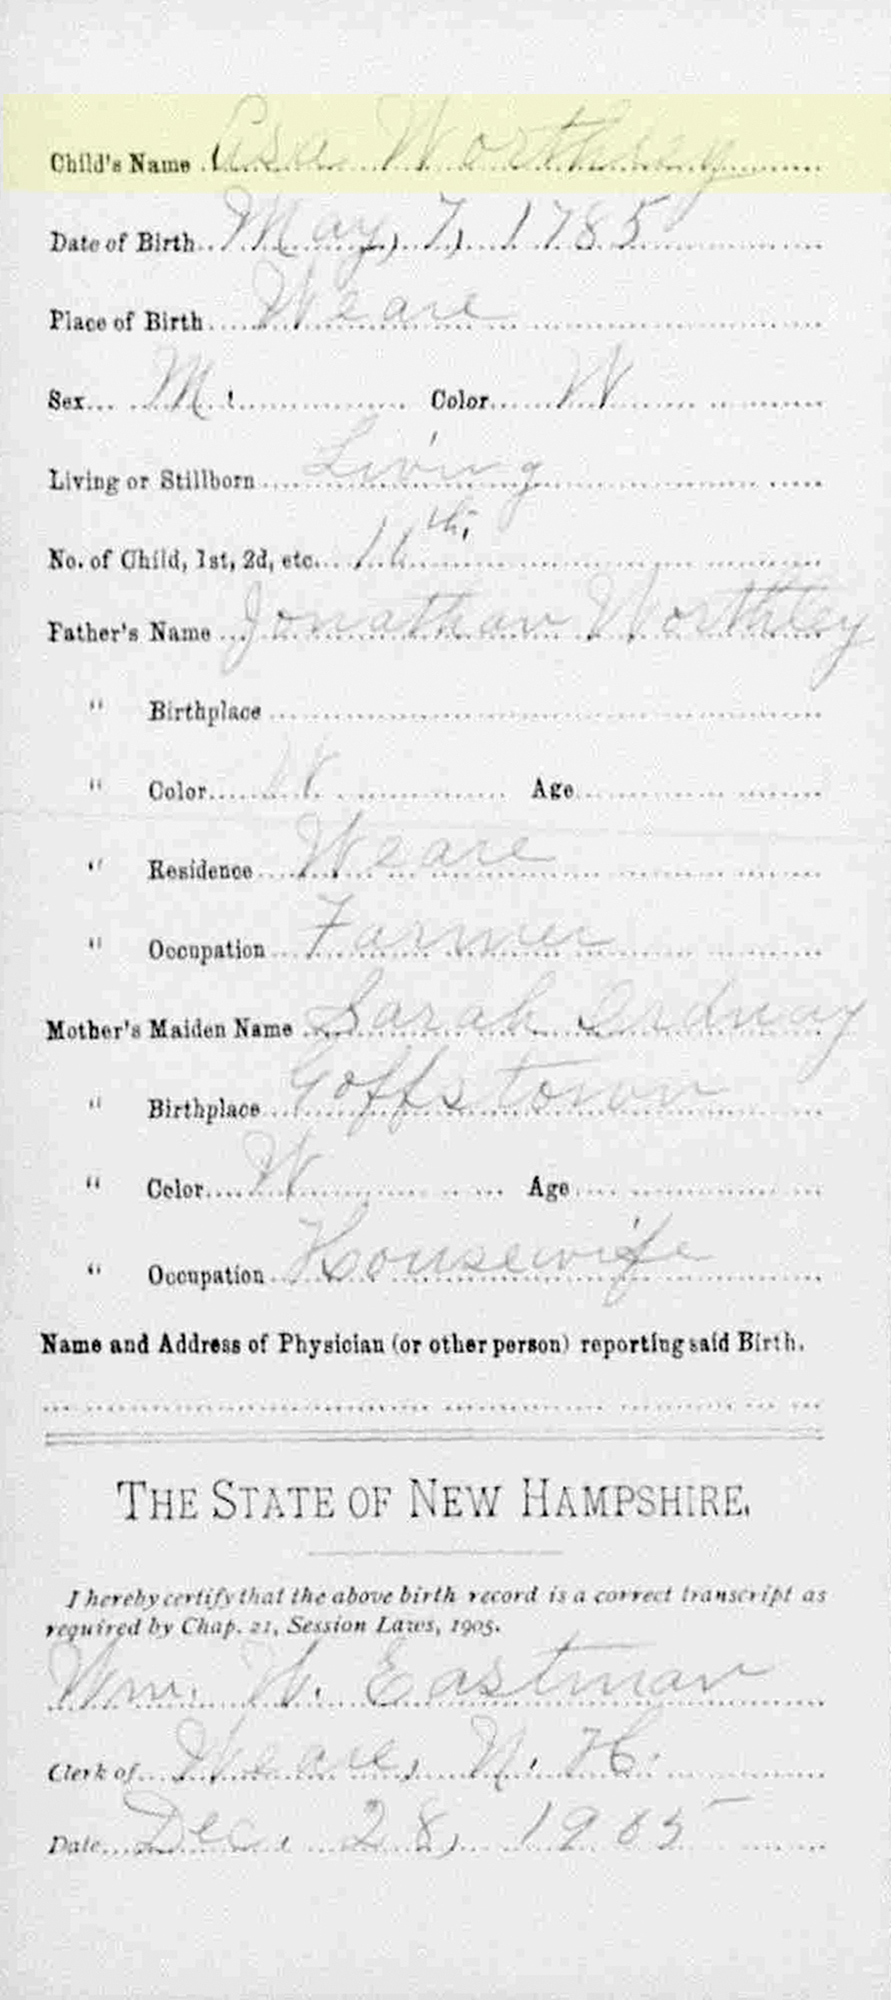 Child's Name Asa Worthley
Date of Birth May, 7, 1785
Place of Birth Weare
Sex M. Color W
Living or Stillborn Living
No. of Child, 1st, 2d, etc. 11th,
Father's Name Jonathan Worthley
" Birthplace
" Color W Age
" Residence Weare
" Occupation Farmer
Mother's Maiden Name Sarah Ordway
" Birthplace Goffstown
" Color W Age
" Occupation Housewife
Name and Address of Physician (or other person) reporting said Birth.
THE STATE OF NEW HAMPSHIRE.
I hereby certify that the above birth record is a correct transcript as
required by Chap. 21, Session Laws, 1905.
Wm. W. Eastman
Clerk of Weare, N. H.
Date Dec. 28, 1905